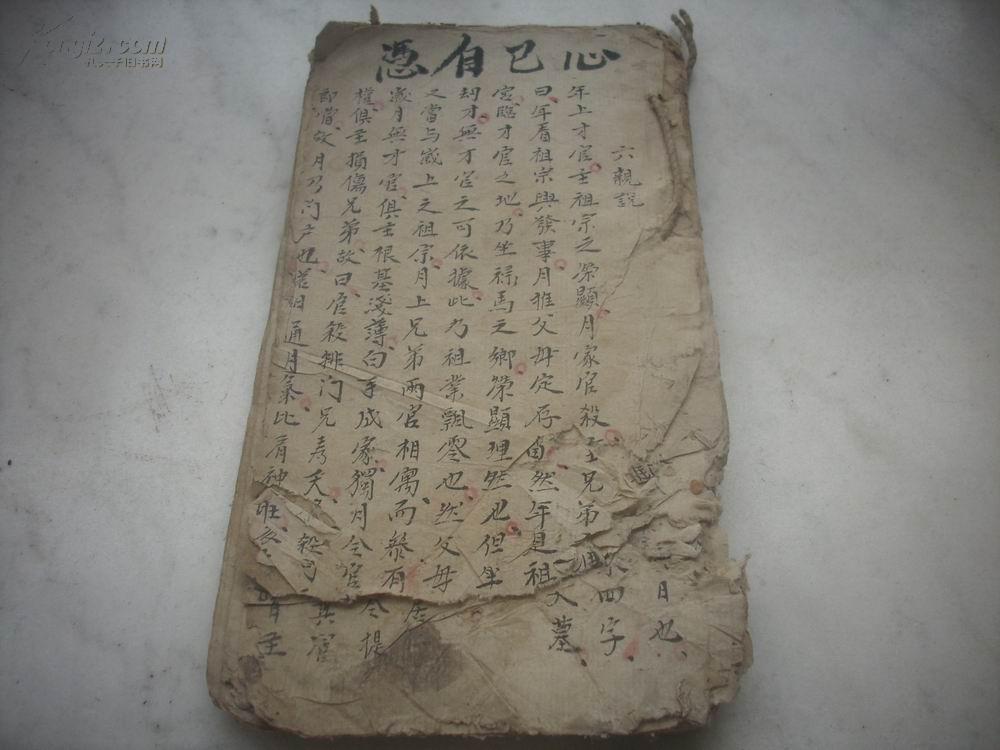 心已自憑
六親說
年上才官主祖宗之榮顯月家官殺主兄弟
四字
日也
曰年看祖宗興發事月推父母定存自然年是祖
入墓
宮臨才官之地乃坐祿馬之鄉榮顯理然也但年
劫才無才官之可依據此乃祖業飄零也然父母
又當与歲上之祖宗月上兄弟兩宮相寓而參有
歲月無才官俱主根基淺薄白手成家獨月令官
令提
權俱主損傷兄弟故曰官殺排门兄寿夭
其官
即當故月乃门户也 通月氣比肩神旺
kongfz.com
孔夫子旧书网